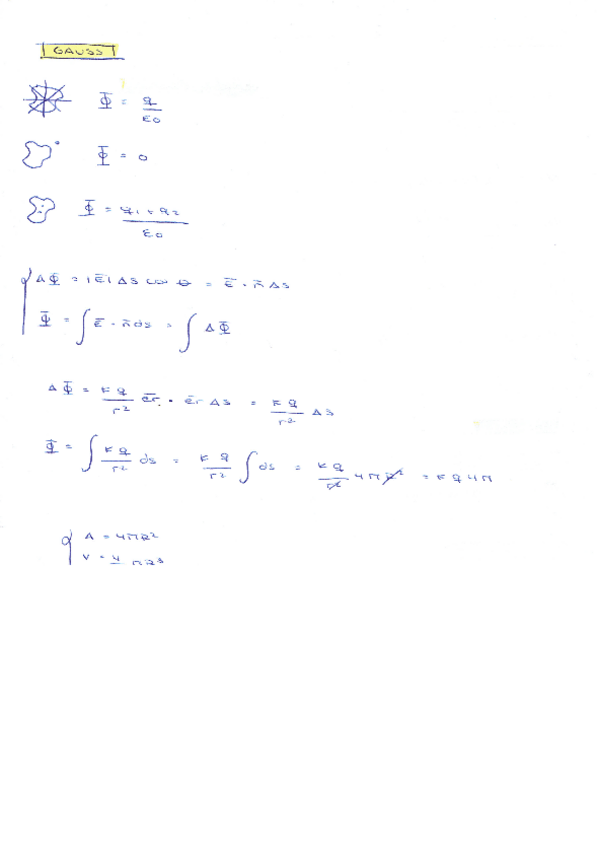 GAUSS
Φ = q / ε0
Φ = 0
Φ = q1 + q2 / ε0
ΔΦ = |E̅| ΔS cos θ = E̅ · n̅ ΔS
Φ = ∫ E̅ · n̅ ds = ∫ ΔΦ
ΔΦ = K q / r² e̅r · e̅r ΔS = K q / r² ΔS
Φ = ∫ K q / r² ds = K q / r² ∫ ds = K q / r² 4πR² = K q 4π
A = 4πR²
V = 4 πR³